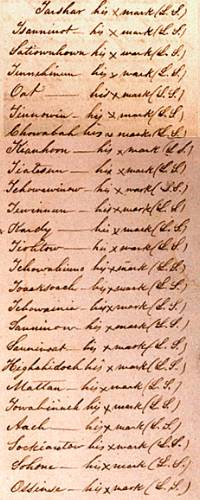 Tarshar his x mark (L.S.)
his x mark (L.S.)
his x mark (L.S.)
Tinnehinun his x mark (L.S.)
Ont his x mark (L.S.)
Tinnowin his x mark (L.S.)
Chowabah his x mark (L.S.)
Keanhoon his x mark (L.S.)
Tiatesun his x mark (L.S.)
Tchowewinow his x mark (L.S.)
Tewinnun his x mark (L.S.)
Hardy his x mark (L.S.)
Tioltow his x mark (L.S.)
his x mark (L.S.)
his x mark (L.S.)
Tchowainie his x mark (L.S.)
Tanninow his x mark (L.S.)
his x mark (L.S.)
Heghahidoch his x mark (L.S.)
Mattan his x mark (L.S.)
his x mark (L.S.)
Nach his x mark (L.S.)
Sockiantow his x mark (L.S.)
Sohone his x mark (L.S.)
Ossinse his x mark (L.S.)